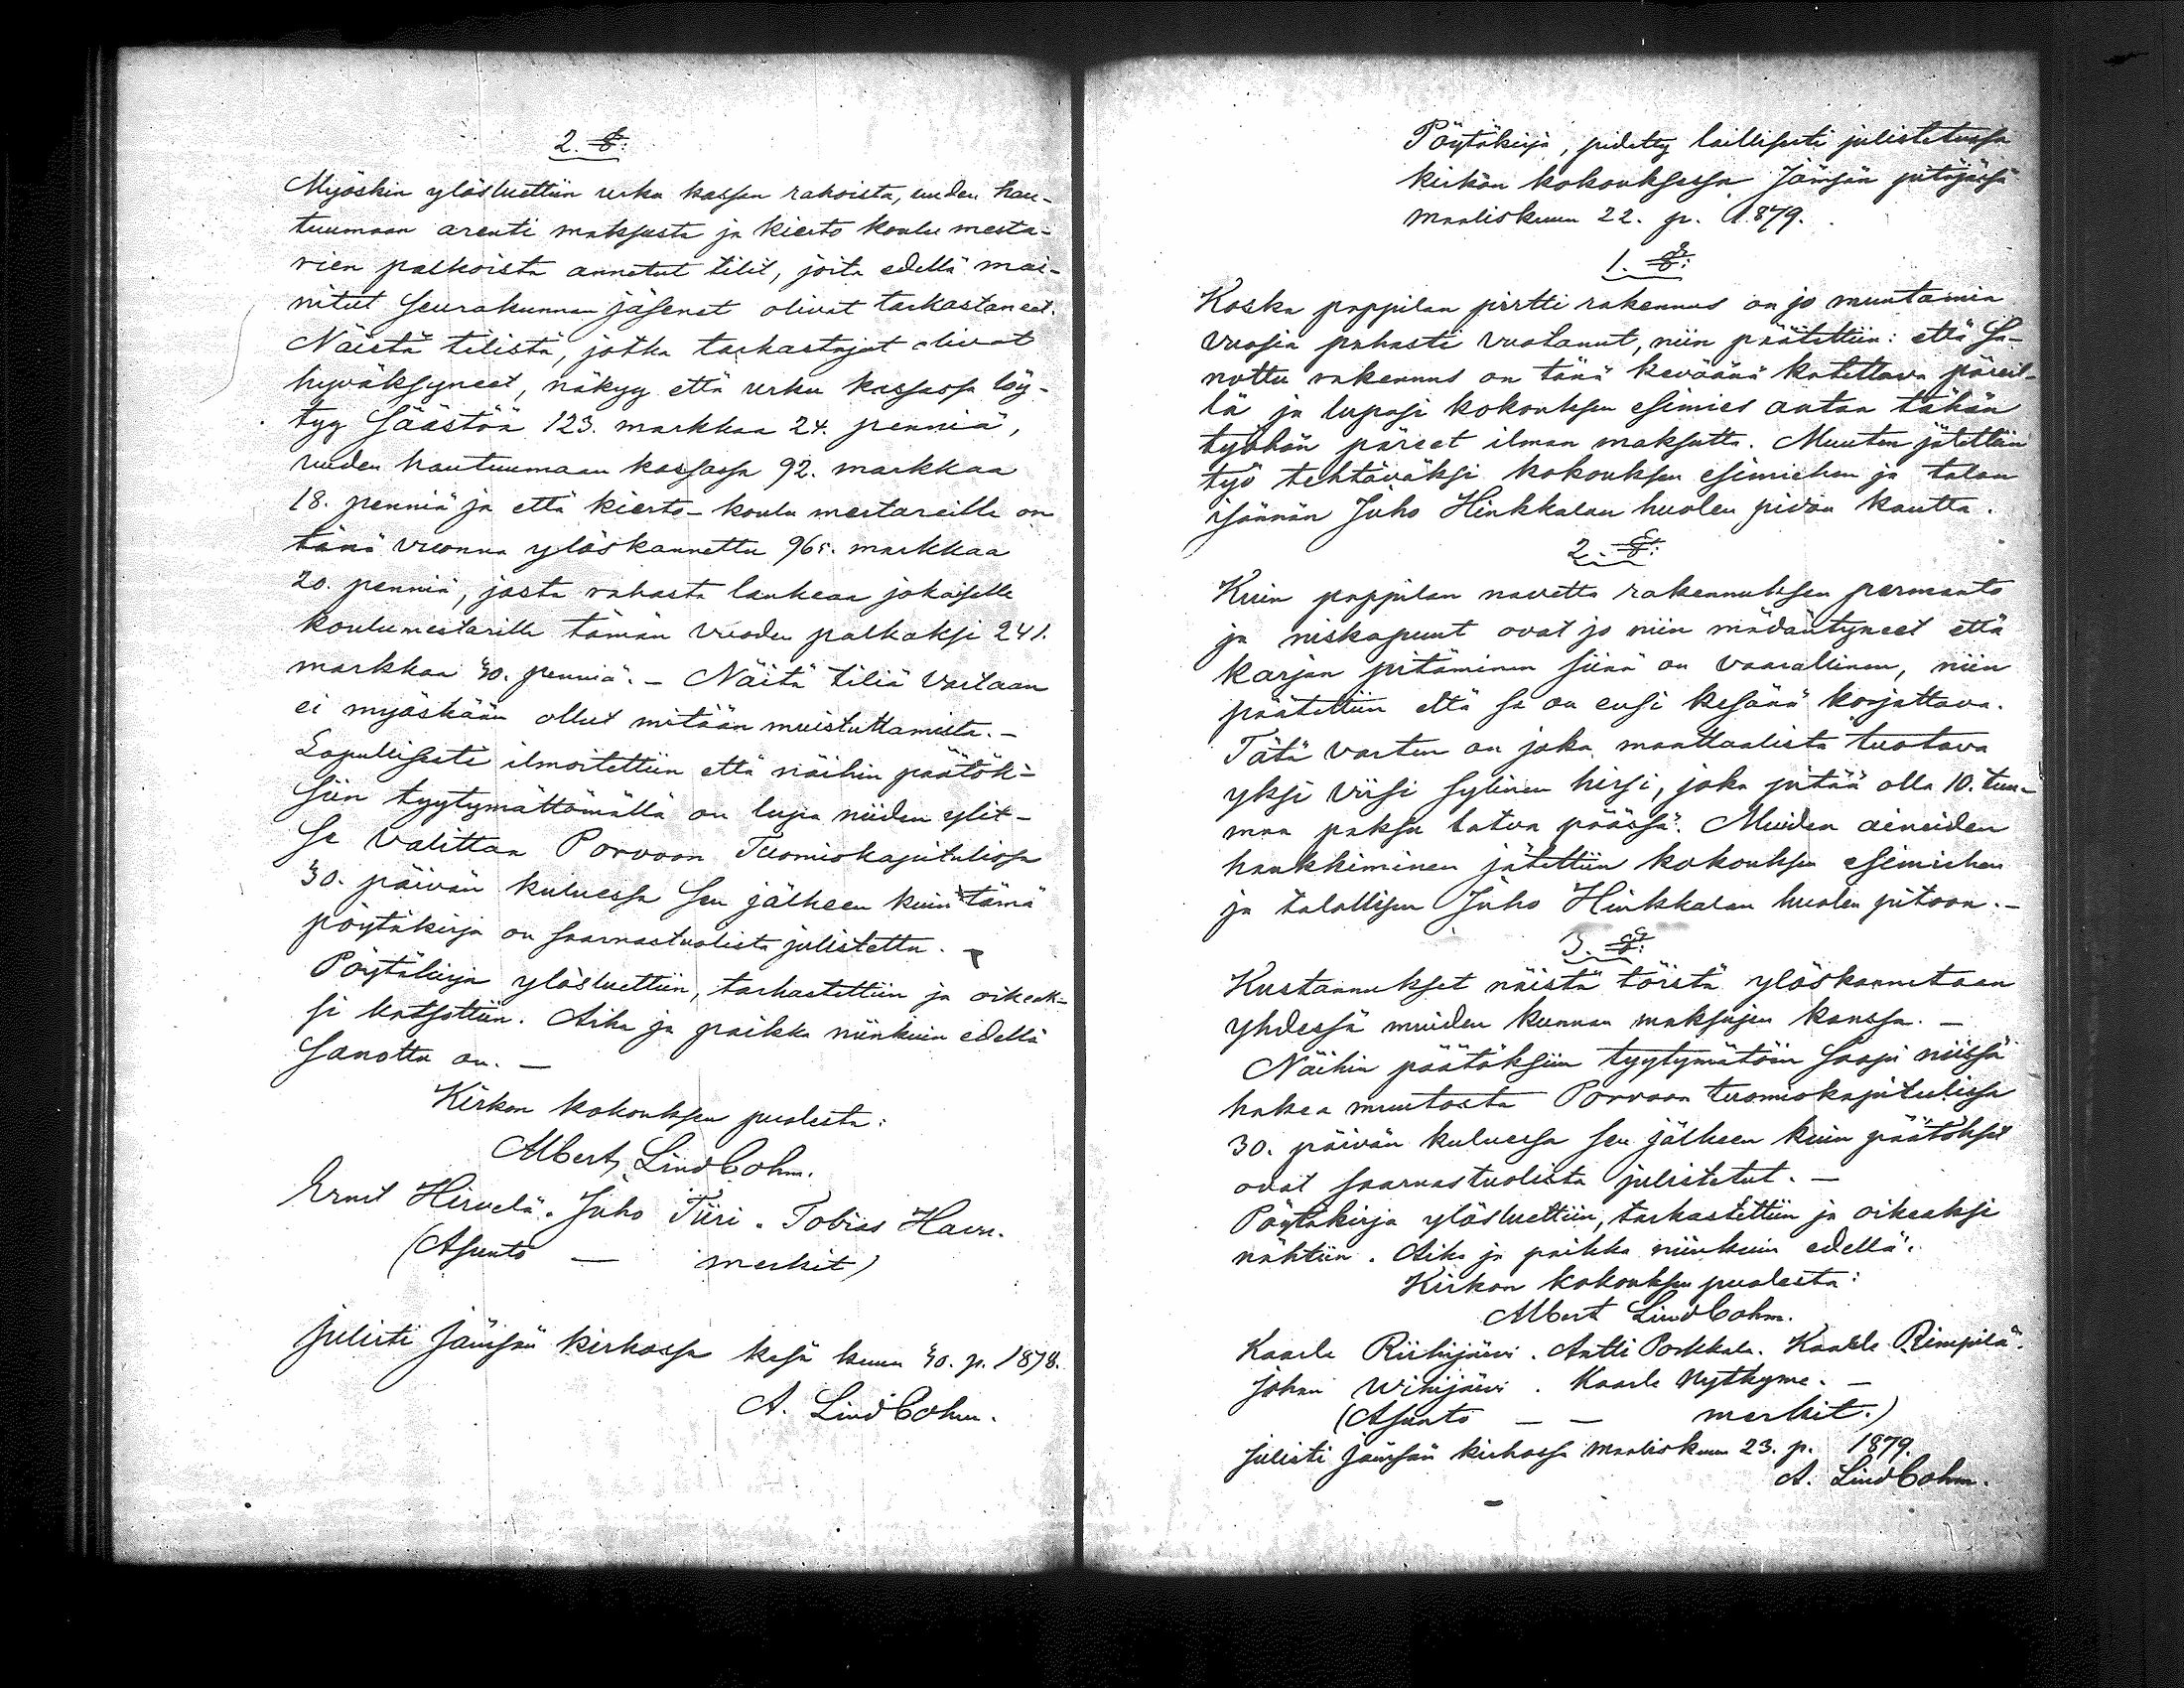 2. §:
Myöskin ylösluettiin urku kassan rahoista, uuden hau-
tuumaan arenti maksusta ja kierto koulu mesta-
rien palkoista annetut tilit, joita edellä mai-
nitut seurakunnan jäsenet olivat tarkastaneet.
Näistä tilistä, jotka tarkastajat olivat
hyväksyneet, näkyy että urku kassassa löy-
tyy säästöä 123. markkaa 24. penniä,
uuden hautuumaan kassassa 92. markkaa
18. penniä ja että kierto-koulu mestareille on
tänä vuonna ylöskannettu 965. markkaa
20. penniä, josta rahasta lankeaa jokaiselle
koulumestarille tämän vuoden palkaksi 241.
markkaa 30. penniä. - Näitä tiliä vastaan
ei myöskään ollut mitään muistuttamista. -
Lopullisesti ilmoitettiin että näihin päätök-
siin tyytymättömällä on lupa niiden ylit-
se valittaa Porvoon Tuomiokapitulissa
30. päivän kuluessa sen jälkeen kuin tämä
pöytäkirja on saarnastuolista julistettu.
Pöytäkirja ylösluettiin, tarkastettiin ja oikeak-
si katsottiin. Aika ja paikka niinkuin edellä
sanottu on. -
Kirkon kokouksen puolesta:
Albert Lindbohm.
Ernst Hirvelä. Juho Tiiri. Tobias Havu.
(Asunto - merkit)
Julisti Jämsän kirkossa kesä kuun 30. p. 1878.
A. Lindbohm.
Pöytäkirja, pidetty laillisesti julistetussa
kirkon kokouksessa Jämsän pitäjässä
maaliskuun 22. p. 1879.
1. §:
Koska pappilan pirtti rakennus on jo muutamia
vuosia pahasti vuotanut, niin päätettiin: että sa-
nottu rakennus on tänä keväänä katettava päreil-
lä ja lupasi kokouksen esimies antaa tähän
työhön päreet ilman maksutta. Muuten jätettiin
työ tehtäväksi kokouksen esimiehen ja talon
isännän Juho Hinkkalan huolen pidon kautta.
2. §:
Kuin pappilan navetta rakennuksen permanto
ja niskapuut ovat jo niin mädäntyneet että
karjan pitäminen siinä on vaarallinen, niin
päätettiin että se on ensi kesänä korjattava.
Tätä varten on joka manttaalista tuotava
yksi viisi sylinen hirsi, joka pitää olla 10. tuu-
maa paksu latva päässä. Muiden aineiden
hankkiminen jätettiin kokouksen esimiehen
ja talollisen Juho Hinkkalan huolen pitoon. -
3. §:
Kustannukset näistä töistä ylöskannetaan
yhdessä muiden kunnan maksujen kanssa. -
Näihin päätöksiin tyytymätöin saapi niissä
hakea muutosta Porvoon tuomiokapitulissa
30. päivän kuluessa sen jälkeen kuin päätökset
ovat saarnastuolista julistetut. -
Pöytäkirja ylösluettiin, tarkastettiin ja oikeaksi
nähtiin. Aika ja paikka niinkuin edellä.
Kirkon kokouksen puolesta:
Albert Lindbohm.
Kaarle Riihijärvi. Antti Porkkala. Kaarle Rimpilä.
Johan Wihijärvi. Kaarle Nytkyme. -
(Asunto - - merkit.)
Julisti Jämsän kirkossa maaliskuun 23. p. 1879.
A. Lindbohm.